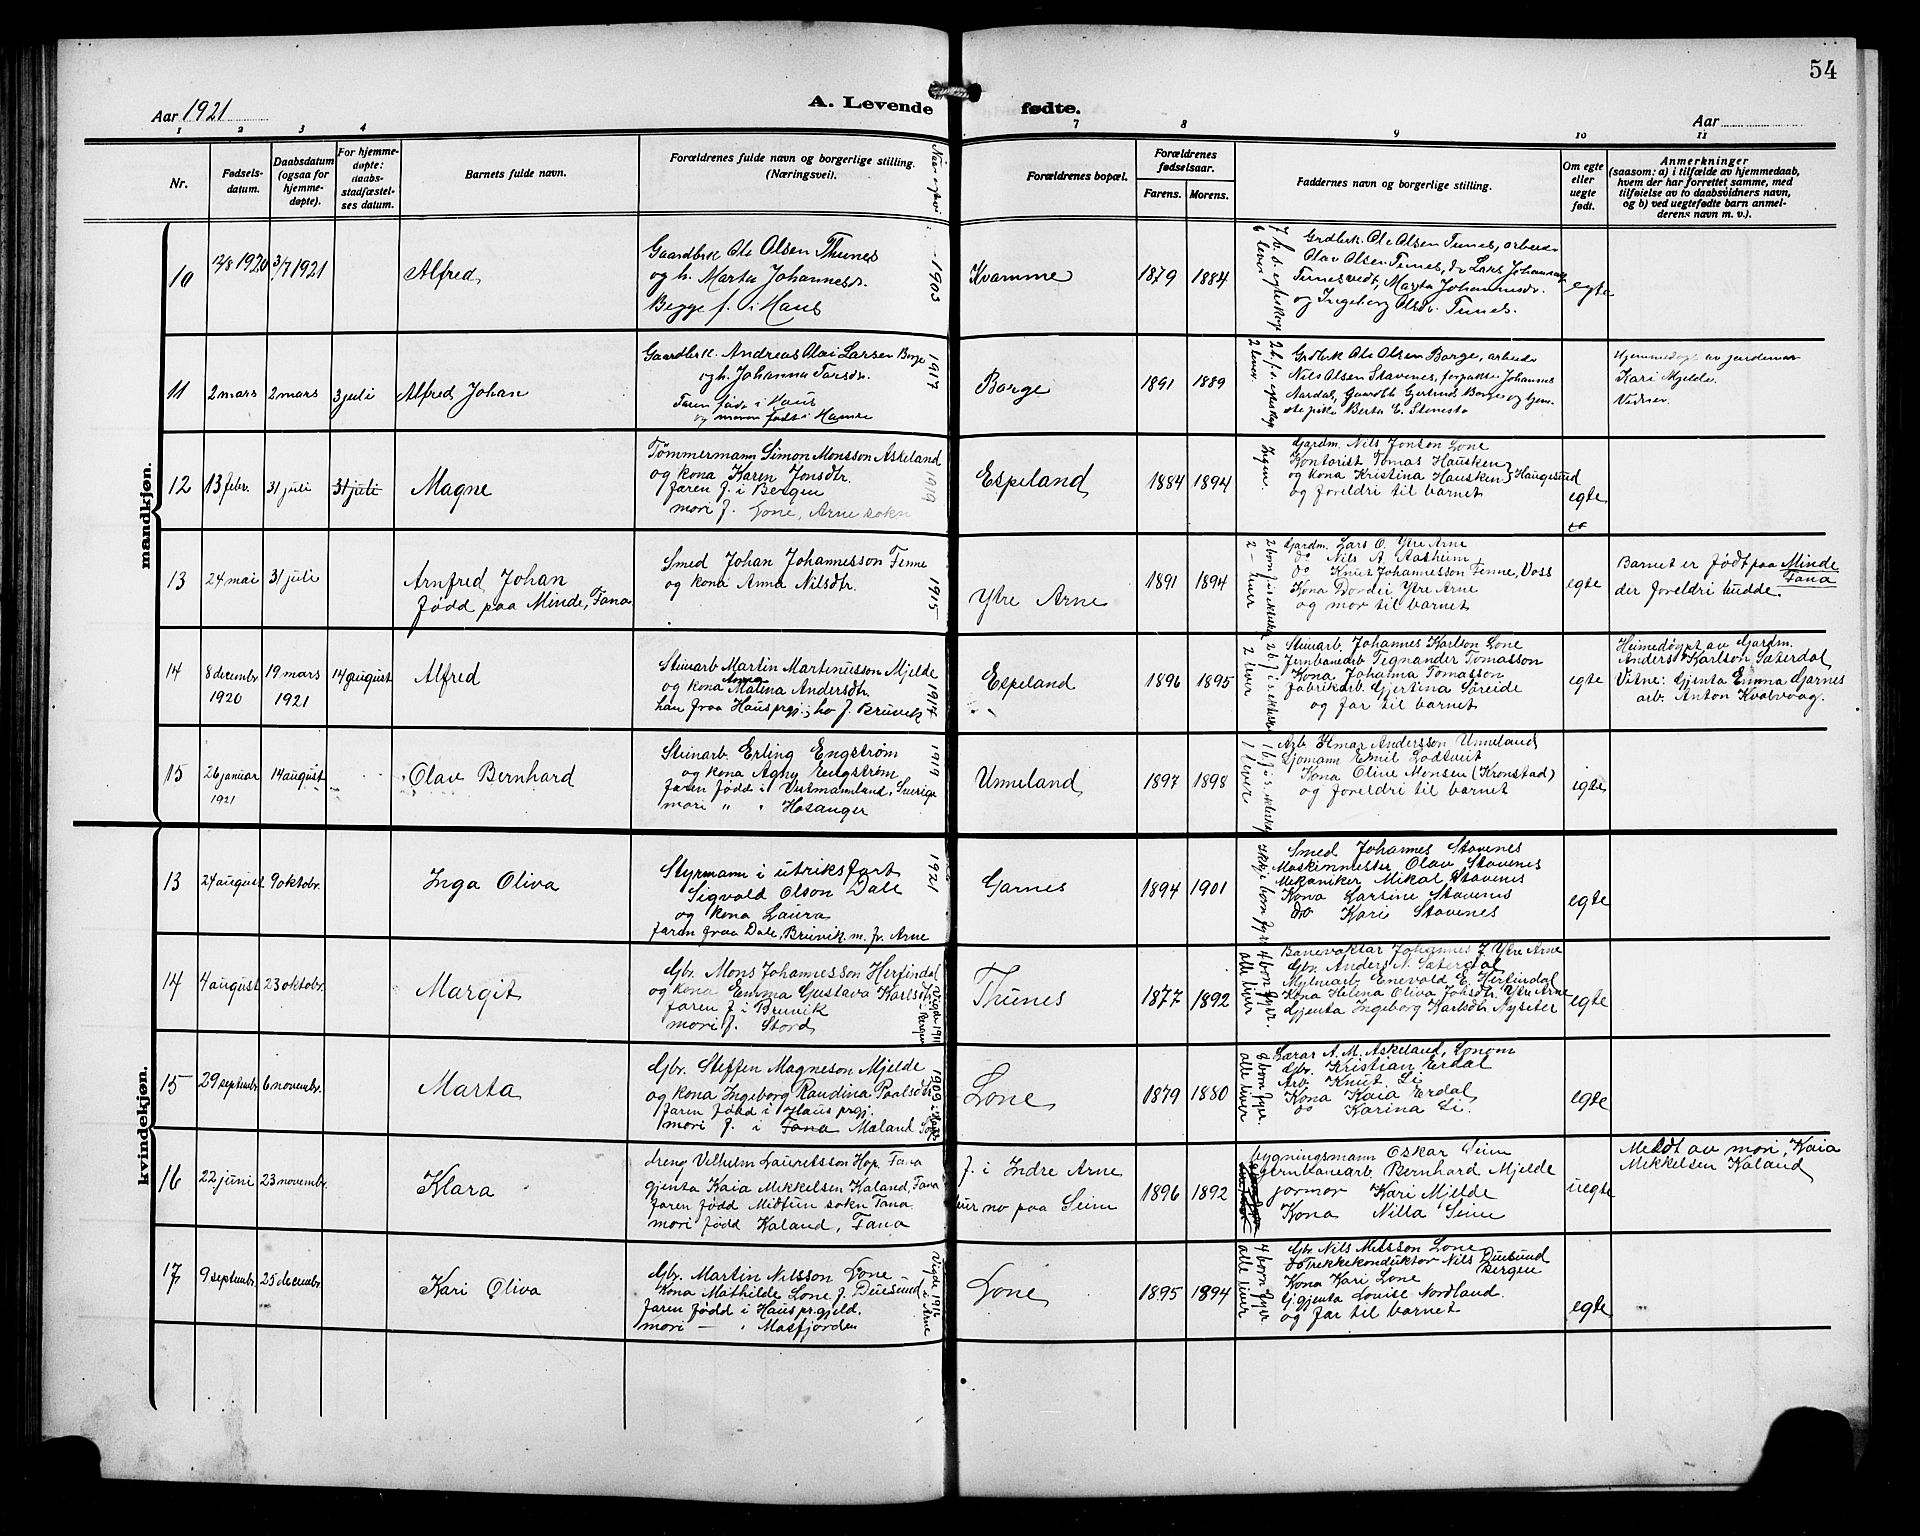 54
Aar 1921
A. Levende fødte.
Aar
1 2 3 4 7 8 9 10 11
Nr.
Fødsels-
datum.
Daabsdatum
(ogsaa for
hjemme-
døpte).
For hjemme-
døpte:
daabs-
stadfæstel-
ses datum.
Barnets fulde navn.
Forældrenes fulde navn og borgerlige stilling.
(Næringsvei).
Naar egtevi
Forældrenes bopæl.
Forældrenes
fødselsaar.
Farens. Morens.
Faddernes navn og borgerlige stilling.
Om egte
eller
uegte
født.
Anmerkninger
(saasom: a) i tilfælde av hjemmedaab,
hvem der har forrettet samme, med
tilføielse av to daabsvidners navn,
og b) ved uegtefødte barn anmel-
derens navn m. v.).
mandkjøn.
10
12/8 1920
3/7 1921
Alfred
Gaardbrk Ole Olsen Thunes
og h. Marta Johannesdr.
Begge f. i Haus
1903
Kvamme
1879 1884
7 b. f. i egteskap
6 lever
Grdbrk. Ole Olsen Tunes, arbeider
Olav Olsen Tunes, do Lars Johannes
Tunesvedt, Marta Johannesdr.
og Ingeborg Olsdr. Tunes.
egte
11
2 mars
2 mars
3 juli
Alfred Johan
Gaardbrk. Andreas Olai Larsen Borge
og h. Johanna Larsdr.
Faren føde i Haus
og moren født i Hamre
1917
Borge
1891 1889
2 b. f. i egteskap
2 lever.
Grdbrk Ole Olsen Borge, arbeider
Nils Olsen Stavenes, forpakter Johannes
Aardal, Gaardb. Gertrud Borge og tjen-
stepike Berta E. Stenestø
Hjemmedøpt av jordemor
Kari Mjelde.
Vidner
12
13 febr.
31 juli
31 juli
Magne
Tømmermann Simon Monsson Askeland
og kona Karen Jonsdtr.
faren f. i Bergen
mori f. Lone, Arne sokn
1919
Espeland
1884 1894
Ingen.
Gardm. Nils Jonson Lone
Kontorist Tomas Hausken
og kona Kristina Hausken } Haugesund
og foreldri til barnet
egte
13
24 mai
31 juli
Arnfred Johan
fødd paa Minde, Fana
Smed Johan Johannesson Fenne
og kona Anna Nilsdtr.
1915
Ytre Arne
1891 1894
2 born f. i ekteskap
2 — liver
Gardm. Lars O. Ytre Arne
do Nils A. Aasheim
do Knut Johannesson Fenne, Voss
Kona Dordei Ytre Arne
og mor til barnet
egte
Barnet er født paa Minde
Fana
der foreldri budde.
14
8 decembr
1920
19 mars
1921
14 august
Alfred
Steinarb Martin Martinusson Mjelde
og kona Anna Malina Andersdtr.
han fraa Haus prgj; ho f. Bruvik
1914
Espeland
1896 1895
2 b. f. i ekteskap
2 lever
Steinarb. Johannes Karlson Lone
Jernbanearb Tegnander Tomasson
Kona Johanna Tomasson
fabrikarb. Gjertina Søreide
og far til barnet
egte
Heimedøypt av Gardm.
Anders Karlson Sæterdal
Vitne: Gjenta Emma Garnes
arb. Anton Kvalvaag.
15
26 januar
1921
14 august
Olav Bernhard
Steinarb. Erling Engstrøm
og kona Agny Engstrøm
faren fødd i Vestmannland, Sverige
mori " " Hosanger
1919
Unneland
1897 1898
1 b. f. i s. ekteskap
1 lever
Arb Elmar Andersson Unneland
Sjomann Emil Lodtveit
Kona Oline Monsen (Kronstad)
og foreldri til barnet
egte
kvindekjøn.
13
24 august
9 oktobr.
Inga Oliva
Styrmann i utriksfart
Sigvald Olson Dale
og kona Laura
faren fraa Dale, Bruvik m. fr. Arne
1921
Garnes
1894 1901
Ikkje born fyr
Smed Johannes Stavenes
Maskinmester Olav Stavenes
Mekaniker Mikal Stavenes
Kona Larsine Stavenes
do Kari Stavenes
egte
14
4 august
23 oktobr.
Margit
Gbr. Mons Johannesson Herfindal
og kona Emma Gustava Karlsdtr
faren f. i Bruvik
mori f. Stord
Vigde 1911
i Bergen
Thunes
1877 1892
4 born fyr.
alle liver
Banevaktar Johannes J. Ytre Arne
Gbr. Anders N. Sæterdal
Mylnearb Enevald E. Herfindal
Kona Helena Oliva Johsdtr. Ytre Arne
Gjenta Ingeborg Karlsdtr. Nyseter
egte
15
29 septembr
6 novembr.
Marta
Gbr. Steffen Magneson Mjelde
og kona Ingeborg Randina Paalsdtr
faren fødd i Haus prgj.
mori f. i Fana Mæland
1909
Lone
1879 1880
8 born fyr.
alle liver
Lærar A. M. Askeland, Lonom
Gbr. Kristian Erdal
Arb Knut Li
Kona Kaia Erdal
do Karina Li.
egte
16
22 juni
23 novembr.
Klara
dreng Vilhelm Lauretsson Hop, Fana
gjenta Kaia Mikkelsen Kaland, Fana
faren fødd Midtun sokn Fana
mori fødd Kaland, Fana
f. i Indre Arne
bur no paa Seim
1896 1892
bygningsmann Oskar Seim
Jernbanearb Bernhard Mjelde
jormor Kari Mjelde
Kona Nilla Seim
uegte
Meldt av mori, Kaia
Mikkelsen Kaland
17
9 septembr.
25 decembr.
Kari Oliva
Gbr. Martin Nilsson Lone
Kona Mathilde Lone f. Duesund
faren fødd i Haus pr.gjeld.
mori — " Masfjorden
Vigde 1916
i Arne
Lone
1895 1894
4 born fyr
alle liver
Gbr. Nils Metsson Lone
Trikkekonduktør Nils Duesund
Bergen
Kona Kari Lone
gjenta Louise Nordland.
og far til barnet
egte